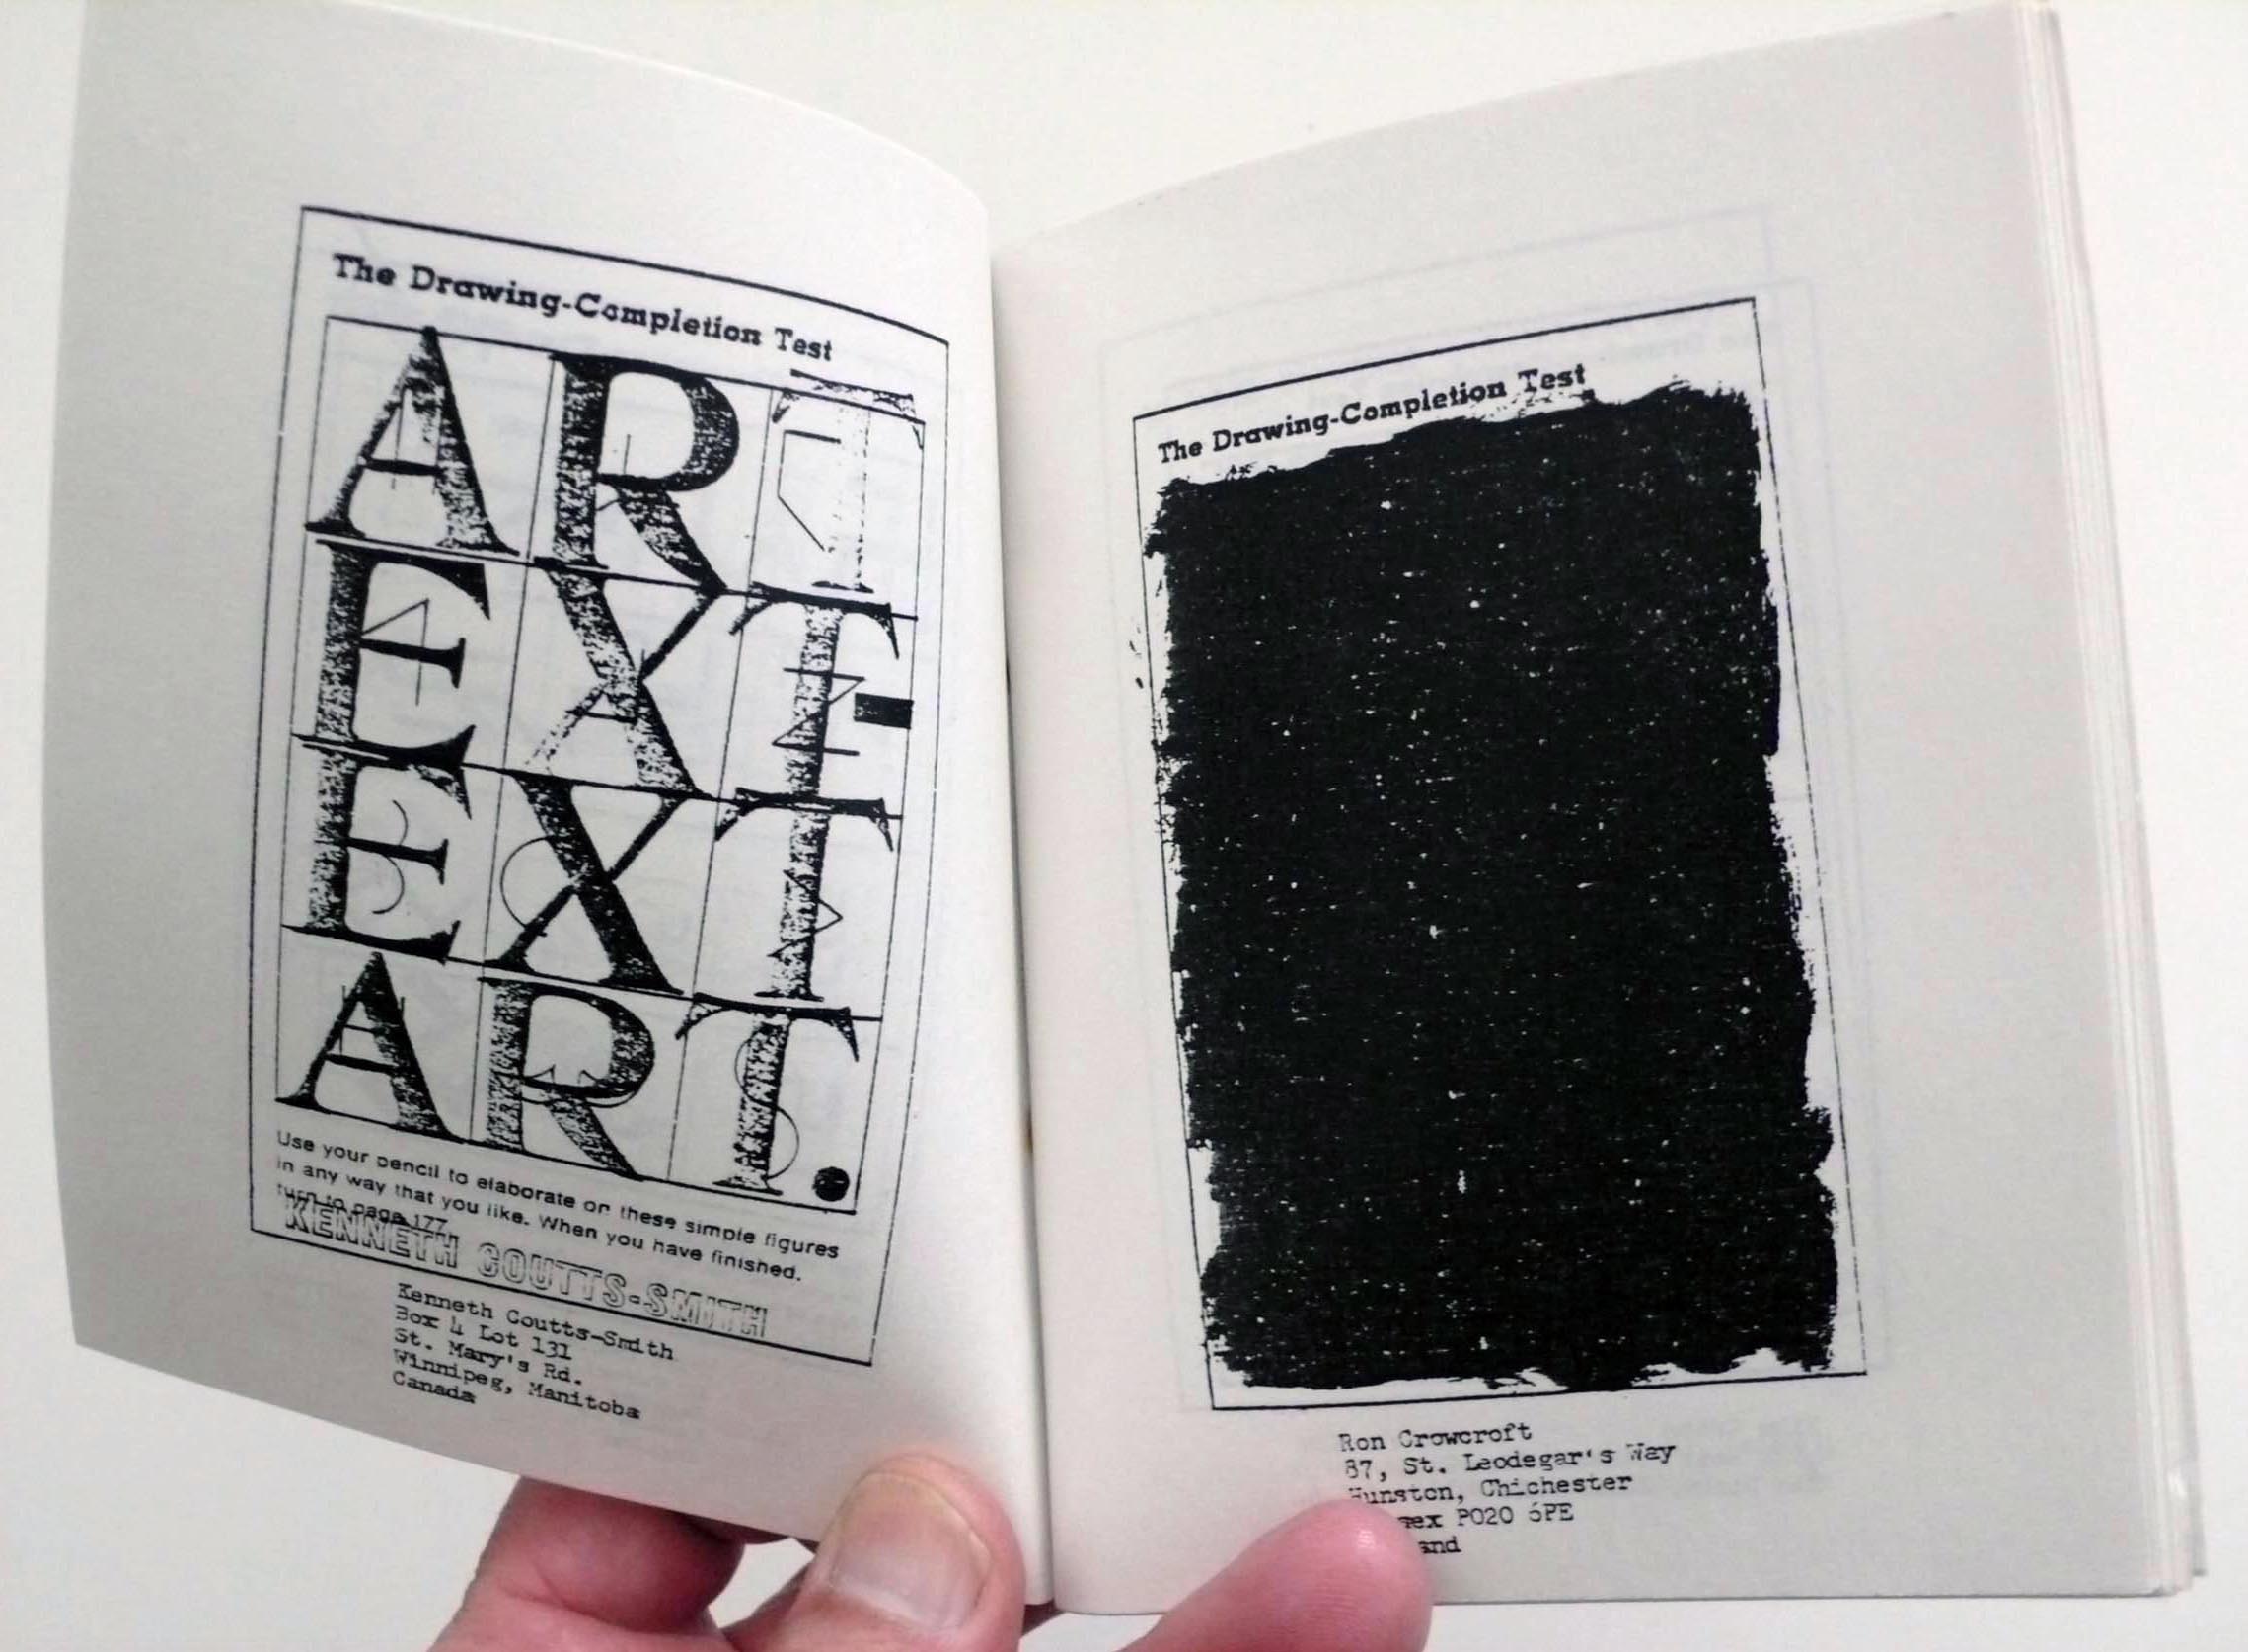 The Drawing-Completion Test
ART
EXT
EXT
ART
Use your pencil to elaborate on these simple figures
in any way that you like. When you have finished.
turn to page 177.
KENNETH COUTTS-SMITH
Kenneth Coutts-Smith
Box 4 Lot 131
St. Mary's Rd.
Winnipeg, Manitoba
Canada
The Drawing-Completion Test
Ron Crowcroft
87, St. Leodegar's Way
Hunston, Chichester
PO20 6PE